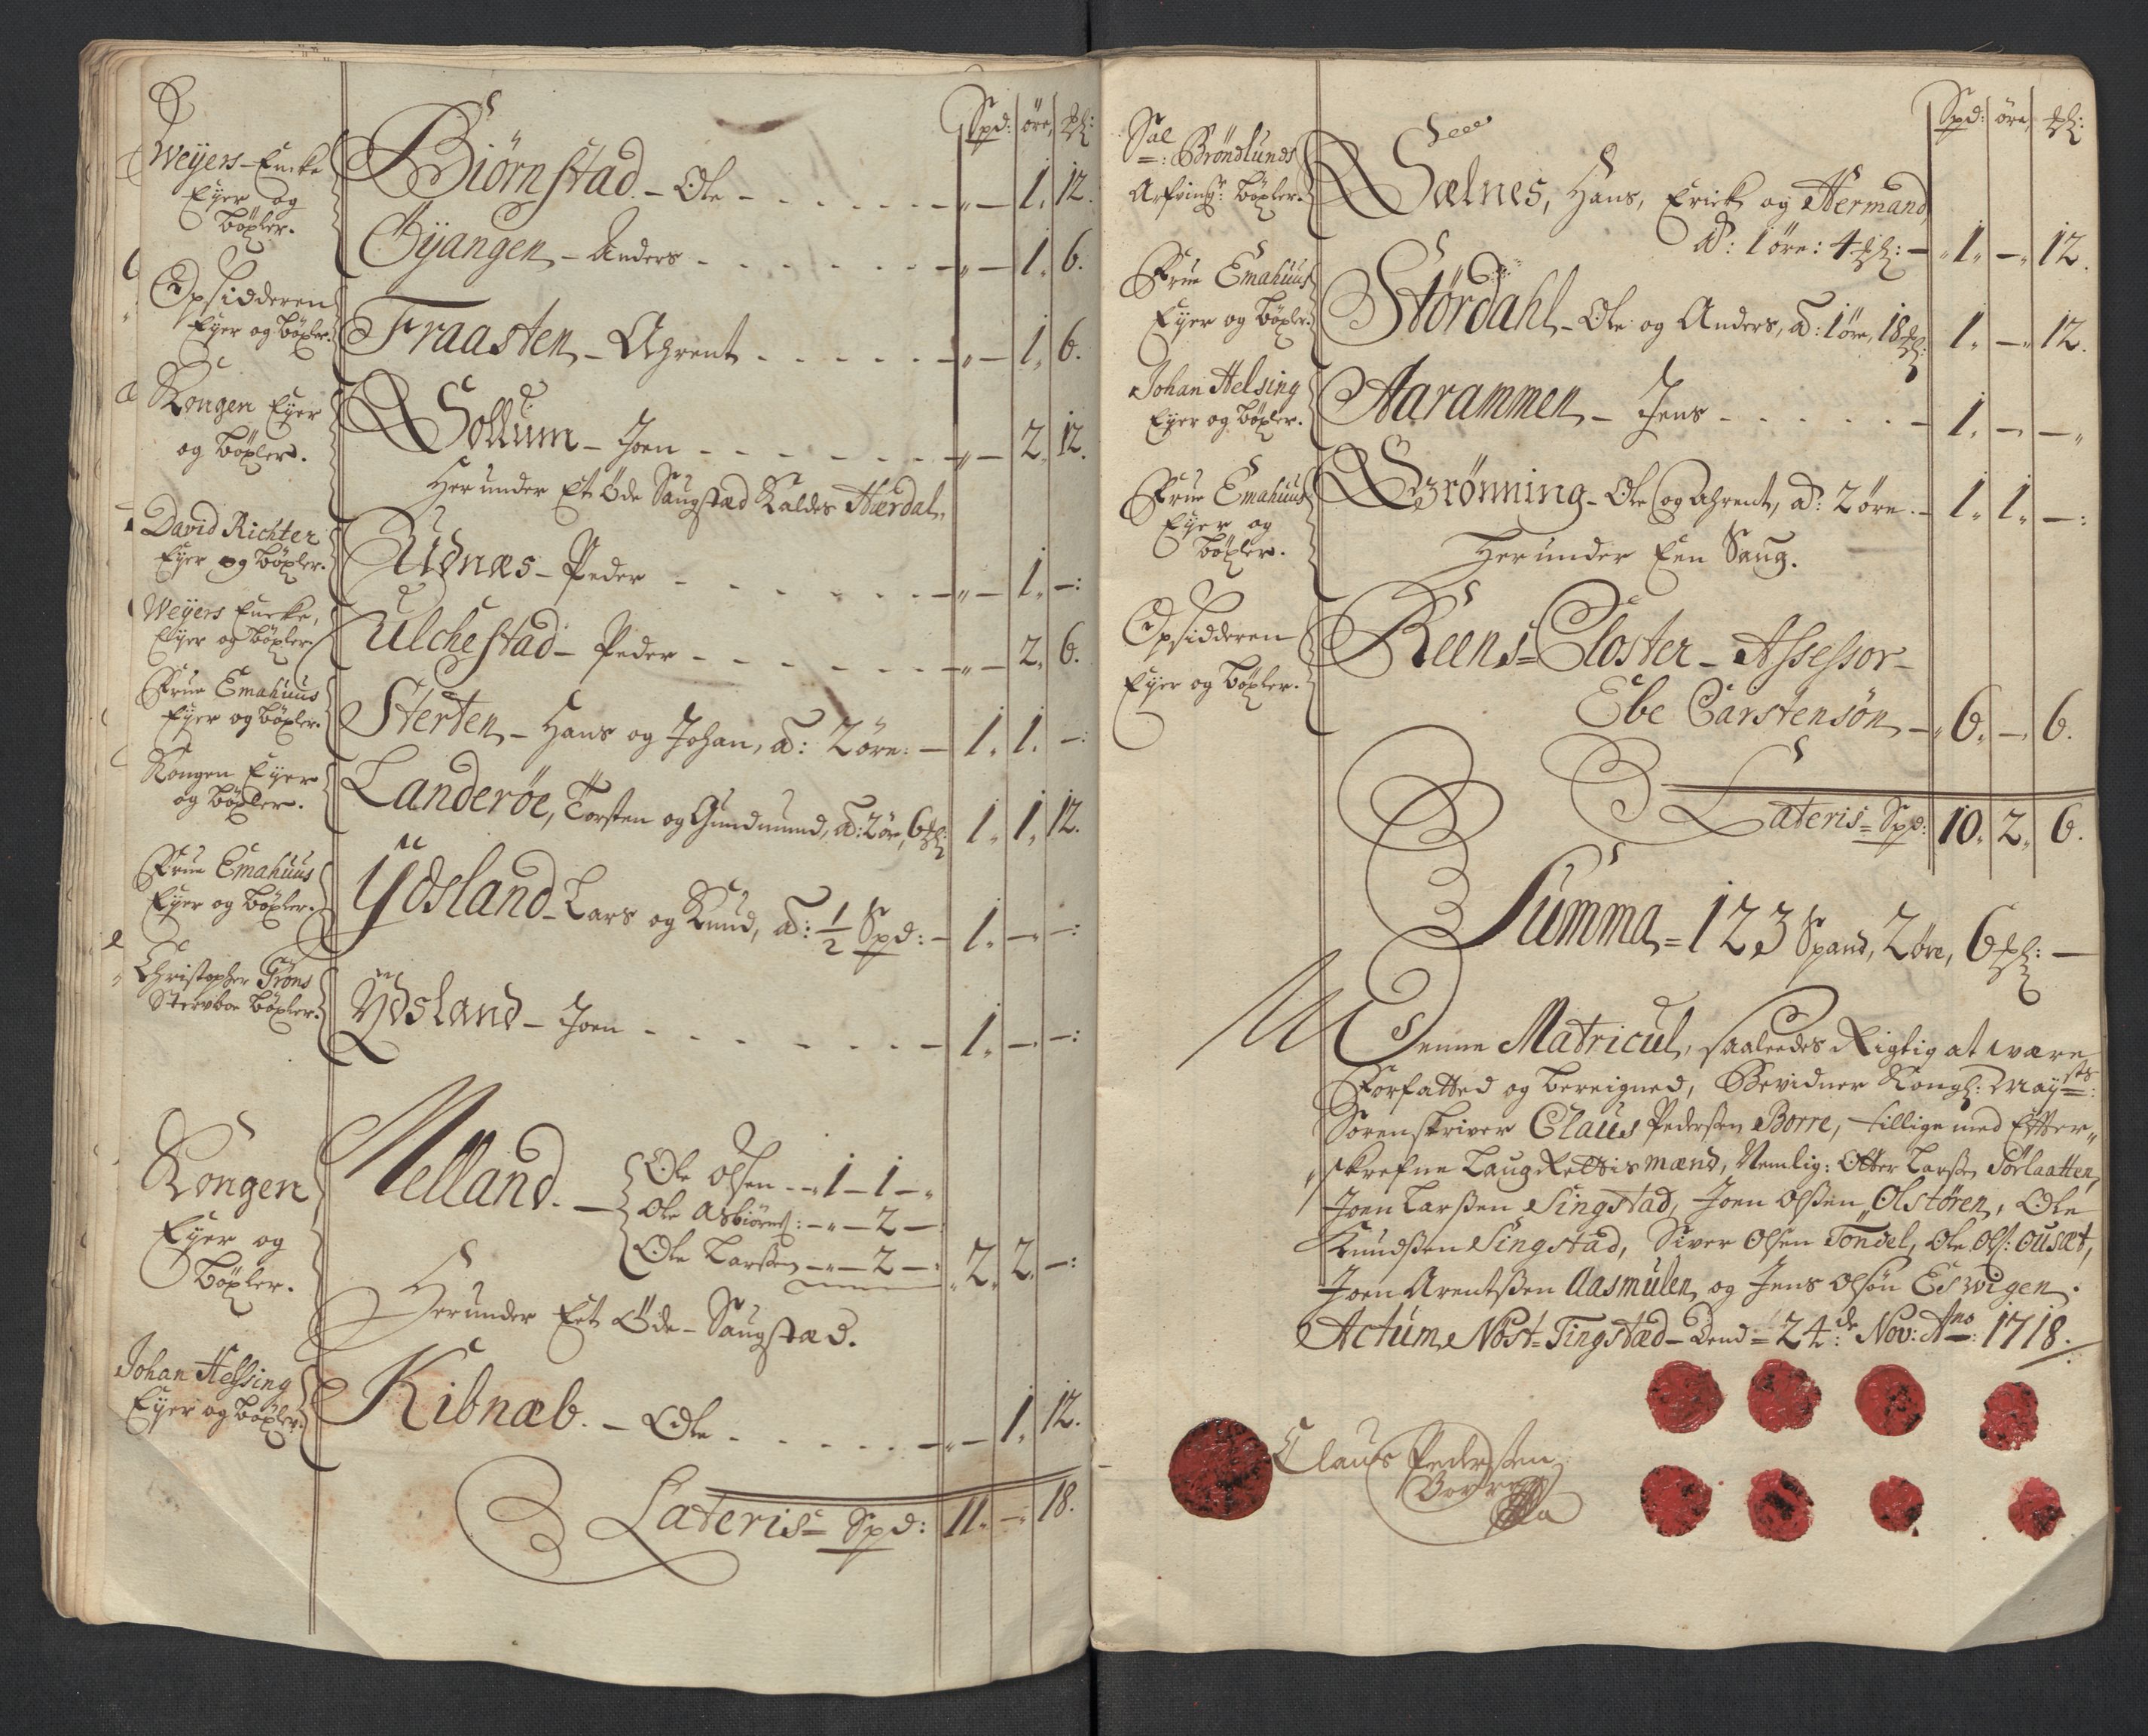 Spd: öre, ℔:
Weÿers-Encke
Eÿer og
böxler.
Biörnstad - Ole - - - - - - - „ - 1. 12.
Gÿangen - Anders - - - - - - - „ - 1. 6.
Opsidderen
Eÿer og böxler.
Fraasten - Arent - - - - - - „ - 1. 6.
Kongen Eÿer
og böxler.
Sollum - Joen - - - - - - - „ - 2. 12.
Her under Et Öde Saugstæd Kaldes Hærdal.
David Richter
Eÿer og böxler.
Udnæs - Peder - - - - - - - „ - 1. -:
Weÿers Encke,
Eÿer og böxler
Ulchestad - Peder - - - - - - - „ - 2. 6.
Frue Emahuus
Eÿer og böxler.
Sterten - Hans og Johan, ad: 2 öre: - 1. 1. -:
Kongen Eÿer
og böxler.
Landeröe, Torsten og Gundmund, ad: 2 öre, 6 ℔: 1. 1. 12.
Frue Emahuus
Eÿer og böxler.
Ÿdsland - Lars og Knud, ad: 1/2 Spd: - 1. - -:
Christopher Tröns
Sterboe böxler.
Ÿdsland - Joen - - - - - - - 1. - -:
Kongen
Eÿer og
böxler.
Melland. - Ole Olsen - - „ 1 - 1 - „
Ole Asbiörns: - „ - 2 -
Ole Larsen - „ - 2 - : 2. 2. -:
Herunder Eet Öde - Saugstæd.
Johan Helsing
Eÿer og böxler.
Kibnæb. - Ole - - - - - - „ - 1. 12.
Lateris = Spd: 11. - 18.
Spd: öre, ℔:
Sal: Bröndlunds
Arfving: böxler.
Sælnes, Hans, Erick og Hermand,
ad: 1 öre: 4 ℔: - 1. - 12.
Frue Emahuus
Eÿer og böxler.
Stördahl - Ole og Anders, ad: 1 öre, 18 ℔: 1. - 12.
Johan Helsing
Eÿer og böxler.
Aarammen - Jens - - - - - - 1. - -„
Frue Emahuus
Eÿer og
böxler.
Grönning - Ole og Arent, ad: 2 öre. - 1. 1. -:
Herunder Een Saug.
Opsidderen
Eÿer og böxler.
Reens = Closter - Assessor -
Ebe Carstensön - 6. - 6.
Lateris = Spd: 10. 2. 6.
Summa = 123 Spand, 2 öre, 6 ℔: -
Denne Matricul, saaleedes Rigtig at være
Forfatted og bereigned, Bevidner Kongl: Maysts:
Sorenskriver Claus Pedersen Borre, tillige med Efter„
„skrefne Laug Rettis mænd, Nemlig: Otter Larsen Sörlaatten,
Joen Larsen Singstad, Joen Olsen Olstören, Ole
Knudsen Singstad, Siver Olsen Tondel, Ole Ols: Ousæt,
Joen Arentsen Aasmulen og Jens Olsön Eswigen.
Actum Nöst = Tingstæd - Dend = 24de: Nov: Ano: 1718.
Claus Pedersen
Borre